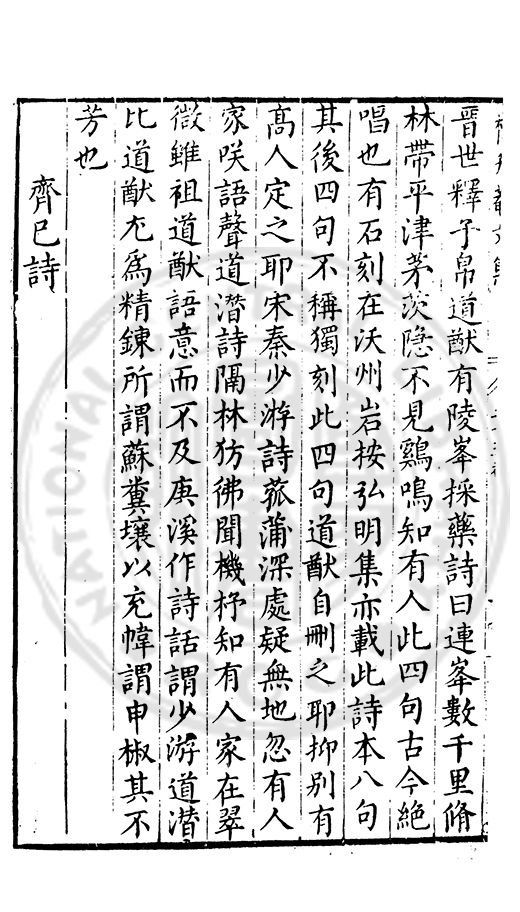 晉世釋子帛道猷有陵峯採藥詩曰連峯數千里脩
林帶平津茅茨隱不見鷄鳴知有人此四句古今絶
唱也有石刻在沃州岩按弘明集亦載此詩本八句
其後四句不稱獨刻此四句道猷自刪之耶抑别有
髙人定之耶宋秦少游詩菰蒲深處疑無地忽有人
家咲語聲道潛詩隔林彷彿聞機杼知有人家在翠
微雖祖道猷語意而不及庚溪作詩話謂少游道潛
比道猷尤爲精鍊所謂蘇糞壤以充幃謂申椒其不
芳也
齊已詩